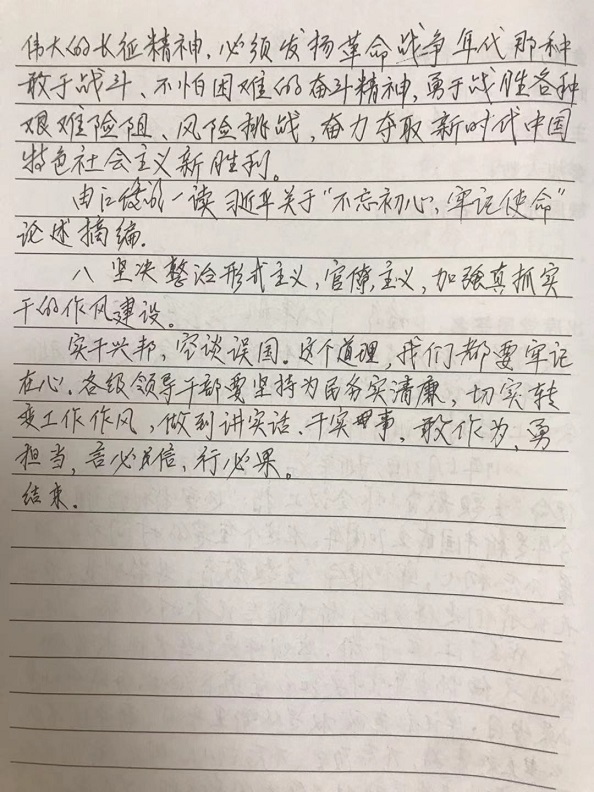 伟大的长征精神，必须发扬革命战争年代那种
敢于战斗、不怕困难的奋斗精神，勇于战胜各种
艰难险阻、风险挑战，奋力夺取新时代中国
特色社会主义新胜利。
由 一读习近平关于“不忘初心，牢记使命”
论述摘编.
八 坚决整治形式主义，官僚主义，加强真抓实
干的作风建设。
实干兴邦，空谈误国。这个道理，我们都要牢记
在心.各级领导干部要坚持为民务实清廉，切实转
变工作作风，做到讲实话、干实事、敢作为，勇
担当，言必信，行必果。
结束.